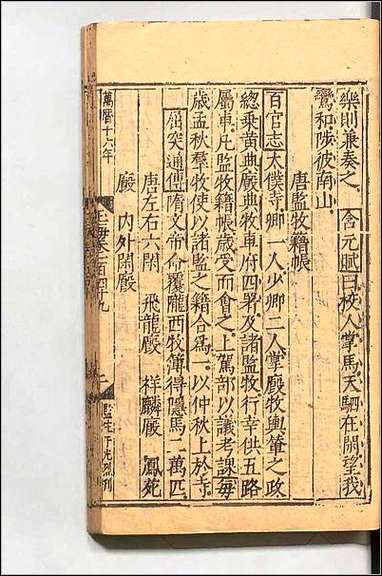 樂則兼奏之含元賦曰校人掌馬天駟在閑望我
鸞和陟彼南山
唐監牧籍帳
百官志太僕寺卿一人少卿二人掌廐牧輿輦之政
總乗黄典廐典牧車府四署及諸監牧行幸供五路
屬車凡監牧籍帳歳受而會之上駕部以議考課毎
歳孟秋羣牧使以諸監之籍合爲一以仲秋上於寺
屈突通傳隋文帝命覆隴西牧簿得隱馬二萬匹
唐左右六閑 飛龍廐 祥麟廐 鳳苑
廐 内外閑廐
萬曆十六年
玉海卷一百四十九
二
監生
刊